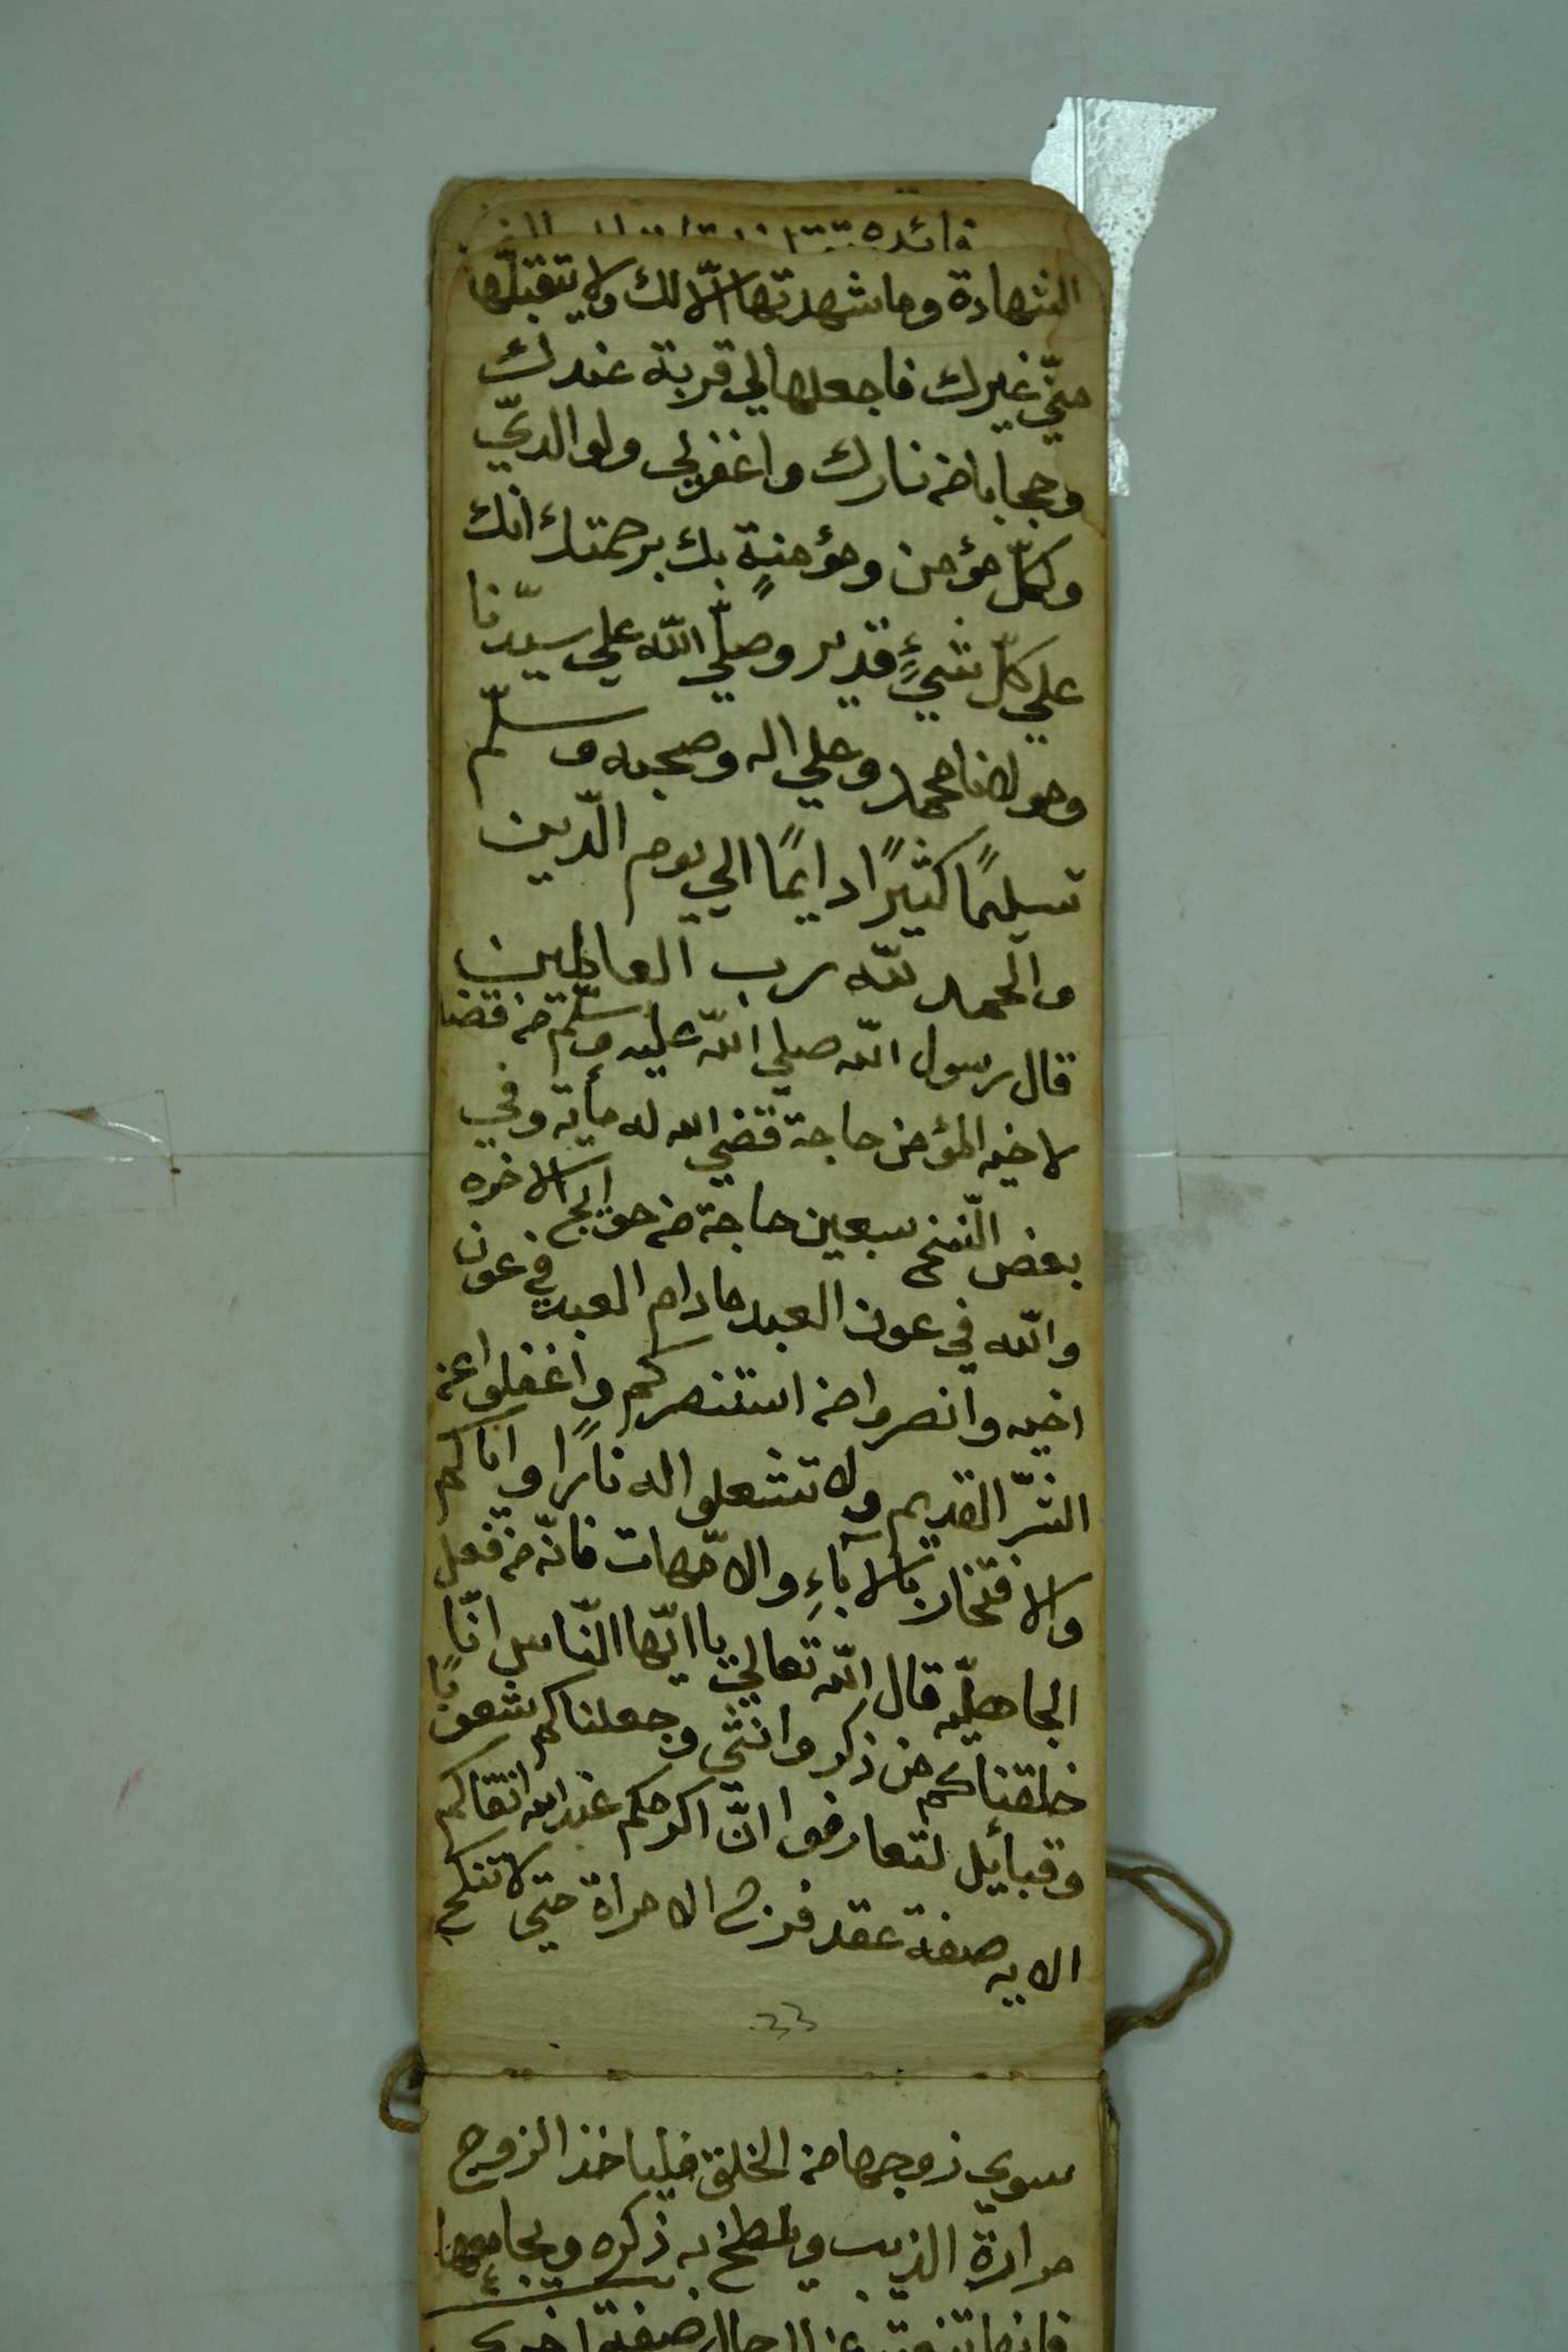 فائده
الشهادة وما شهدتها الّا لك ولا يتقبلّها
منّي غيرك فاجعلها لي قربة عندك
وحجابا من نارك واغفر لي ولوالديّ
وكلّ مؤمن ومؤمنةٍ بك برحمتك انك
علي كلّ شيءٍ قدير وصلّي اللّه علي سيّدنا
ومولانا محمد وعلي اله وصحبه وسلّم
تسليمًا كثيرًا دايمًا الي يوم الدّين
والحمد للّه رب العالمين
قال رسول اللّه صلي اللّه عليه وسلّم من قضا
لاخيه المؤمن حاجة قضي الله له مأية وفي
بعض النّسخ سبعين حاجة من حوايج الاخره
واللّه في عون العبد مادام العبد في عون
اخيه وانصروا من استنصركم واغفلوا عن
الشّر القديم ولا تشعلوا له نارًا واياكم
والافتخار بالاۤباءِ والامّهات فانّه من فعل
الجاهليّه قال اللّه تعالي يا ايّها النّاس انّا
خلقناكم من ذكر وانثي وجعلناكم شعوبًا
وقبأيل لتعارفوا انّ اكرمكم عند الله اتقاكم
الايه صفة عقد فرج الامراة حتي لا تنكح
33
سوي زوجها من الخلق فلياخذ الزوج
مرارة الذيب ويلطخ به ذكره ويجامعها